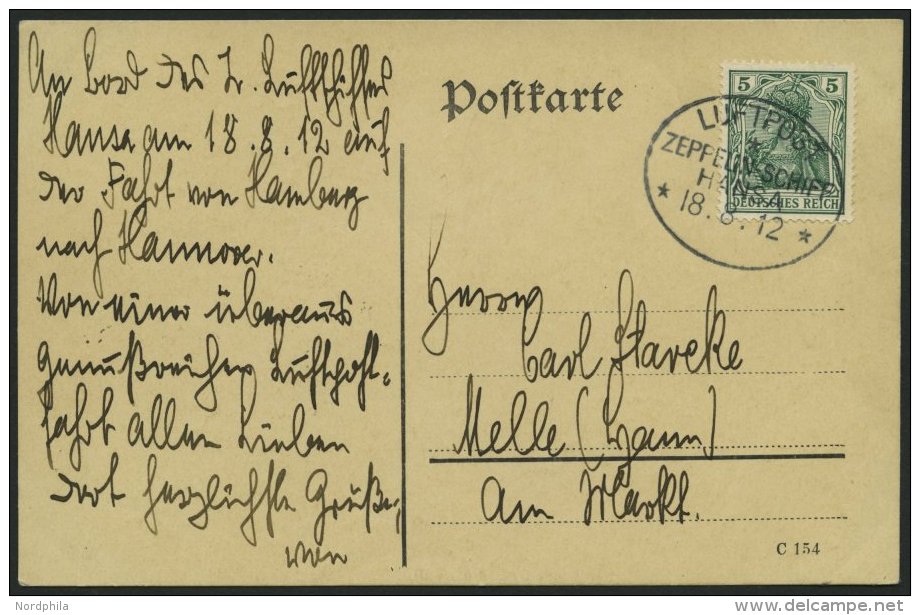 An Bord des Z. Luftschiffes
Hansa am 18.8.12 auf
der Fahrt von Hamburg
nach Hannover.
Von einer überaus
genußreichen Luftpost-
fahrt allen Lieben
dort herzlichste Grüße,
von
Postkarte
5 5
DEUTSCHES REICH
LUFTPOST
*
ZEPPELIN-SCHIFF
HANSA
* 18.8.12 *
Herrn
Carl Starcke
Melle (Hann)
Am Markt.
C 154
Nordphila
delcampe.net